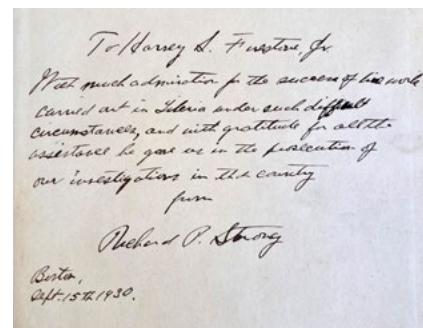 To Harvey S. Firestone, Jr.
With much admiration for the success of the work
carried out in Liberia under such difficult
circumstances, and with gratitude for all the
assistance he gave us in the prosecution of
our investigations in that country
from
Richard P. Strong
Boston,
Sept. 15th 1930.